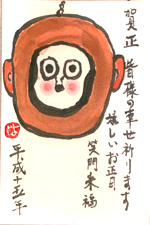 賀正
皆様の幸せ祈ります
嬉しいお正月
笑門来福
平成十五年